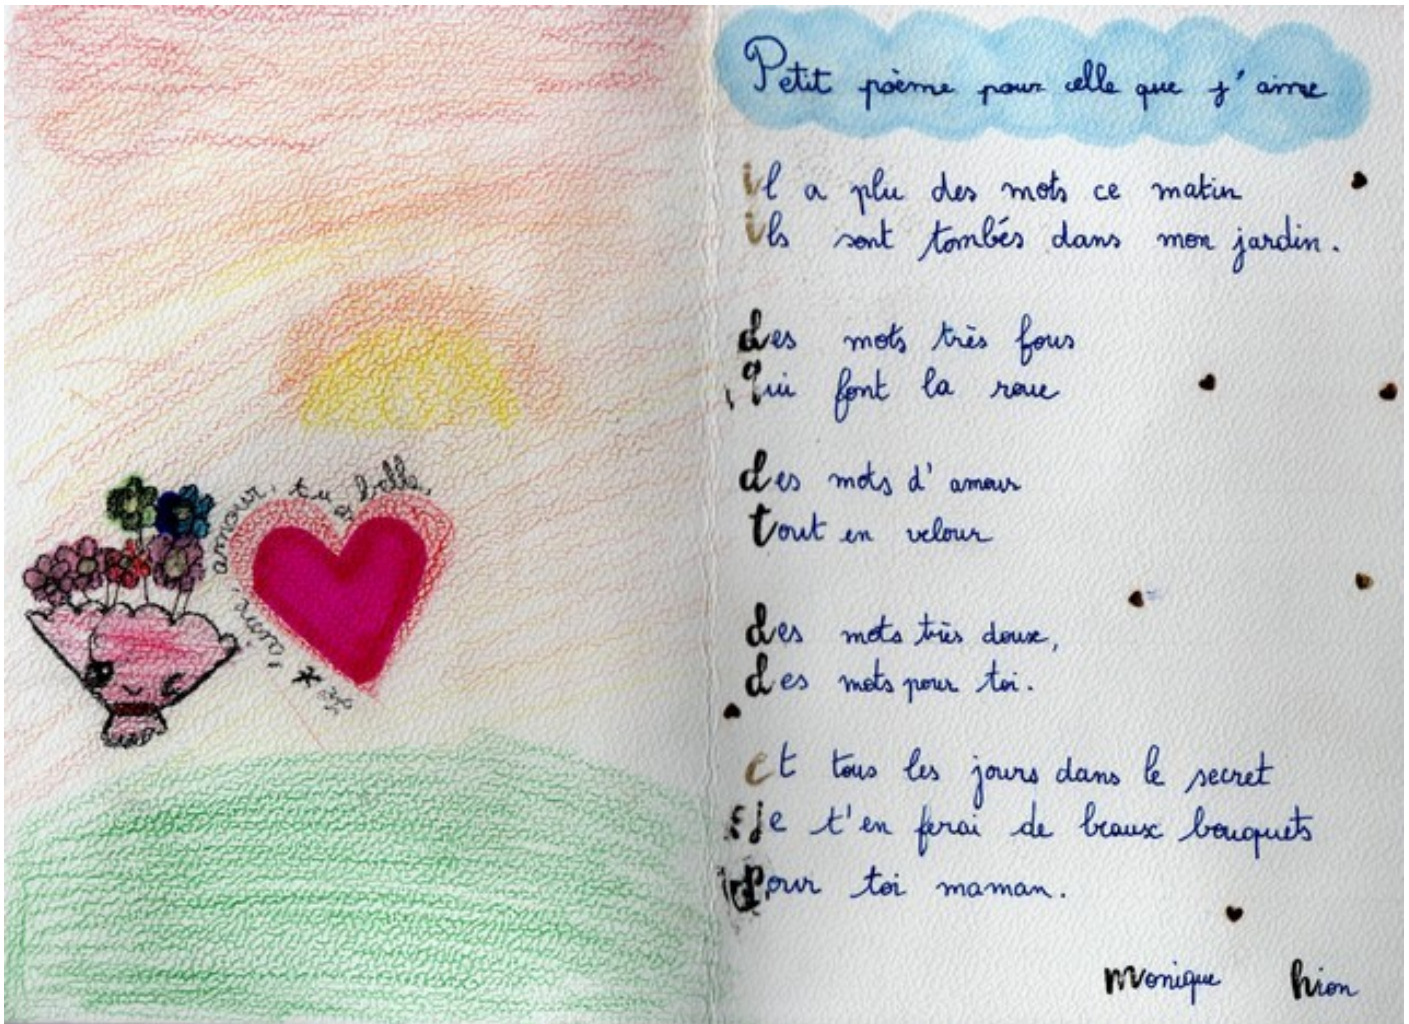 amour, tu es belle,
je * t'aime,
Petit poème pour celle que j'aime
il a plu des mots ce matin
ils sont tombés dans mon jardin.
des mots très fous
qui font la roue
des mots d'amour
tout en velour
des mots très doux,
des mots pour toi.
et tous les jours dans le secret
je t'en ferai de beaux bouquets
pour toi maman.
monique hion